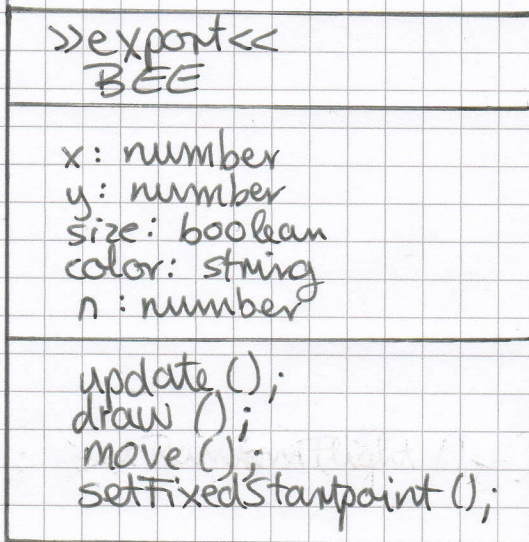 >>export<<
BEE
x: number
y: number
size: boolean
color: string
n: number
update();
draw();
move();
setFixedStartpoint();